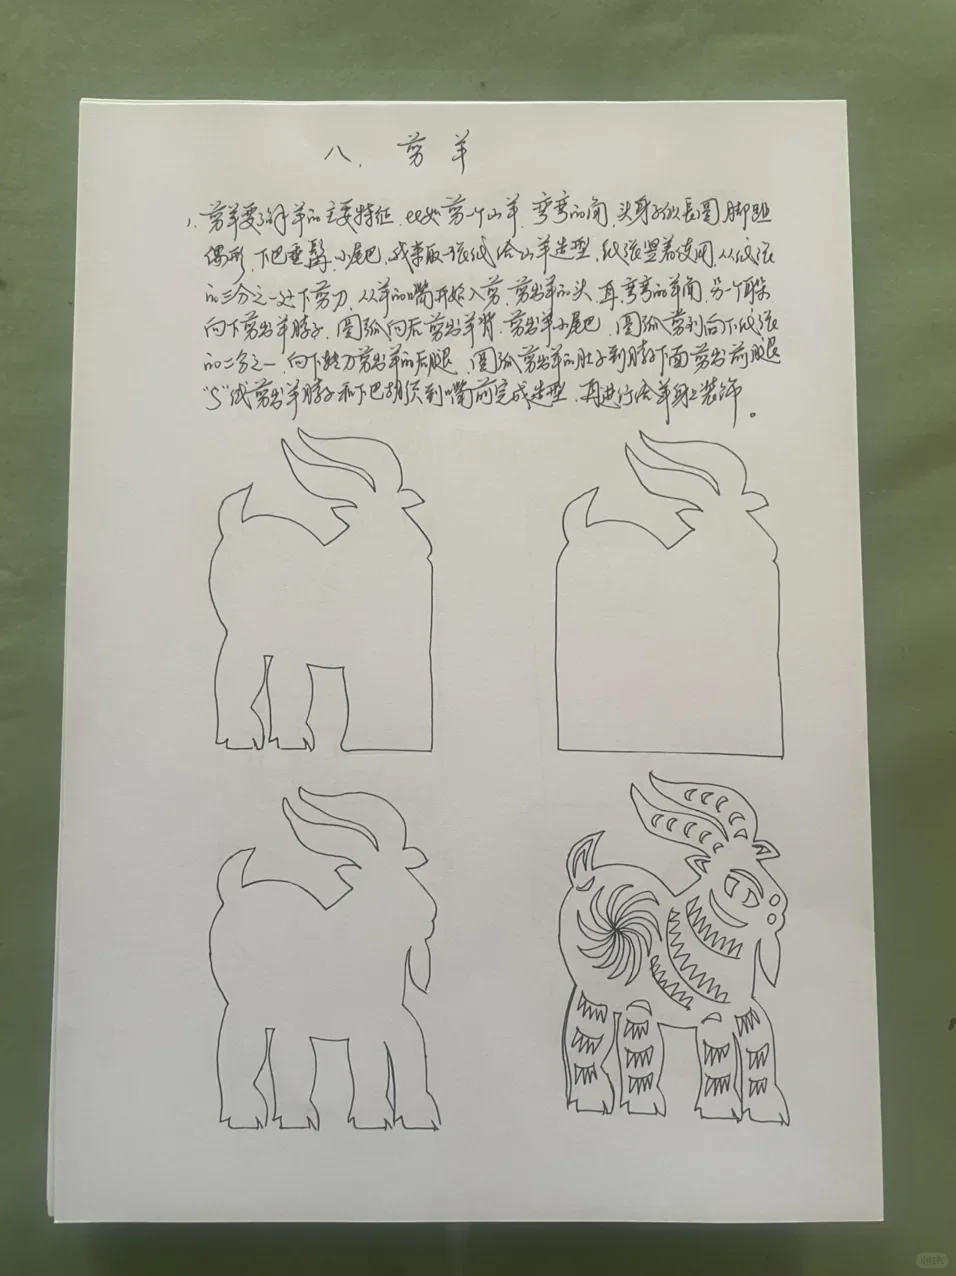 八、剪羊
1、剪羊要了解羊的主要特征,比如剪一个山羊,弯弯的角,头身子似长圆,脚蹄
偶形,下巴垂髯,小尾巴,我拿取一张纸给山羊造型,纸张竖着使用,从纸张
的三分之一处下剪刀,从羊的嘴开始入剪,剪出羊的头、耳,弯弯的羊角,另一个耳朵
向下剪出羊脖子,圆弧向后剪出羊背,剪出羊小尾巴,圆弧剪到向下纸张
的二分之一,向下转刀剪出羊的后腿,圆弧剪出羊的肚子到脖下面剪出前腿
“S”线剪出羊脖子和下巴胡须到嘴前完成造型,再进行给羊身上装饰。
小红书